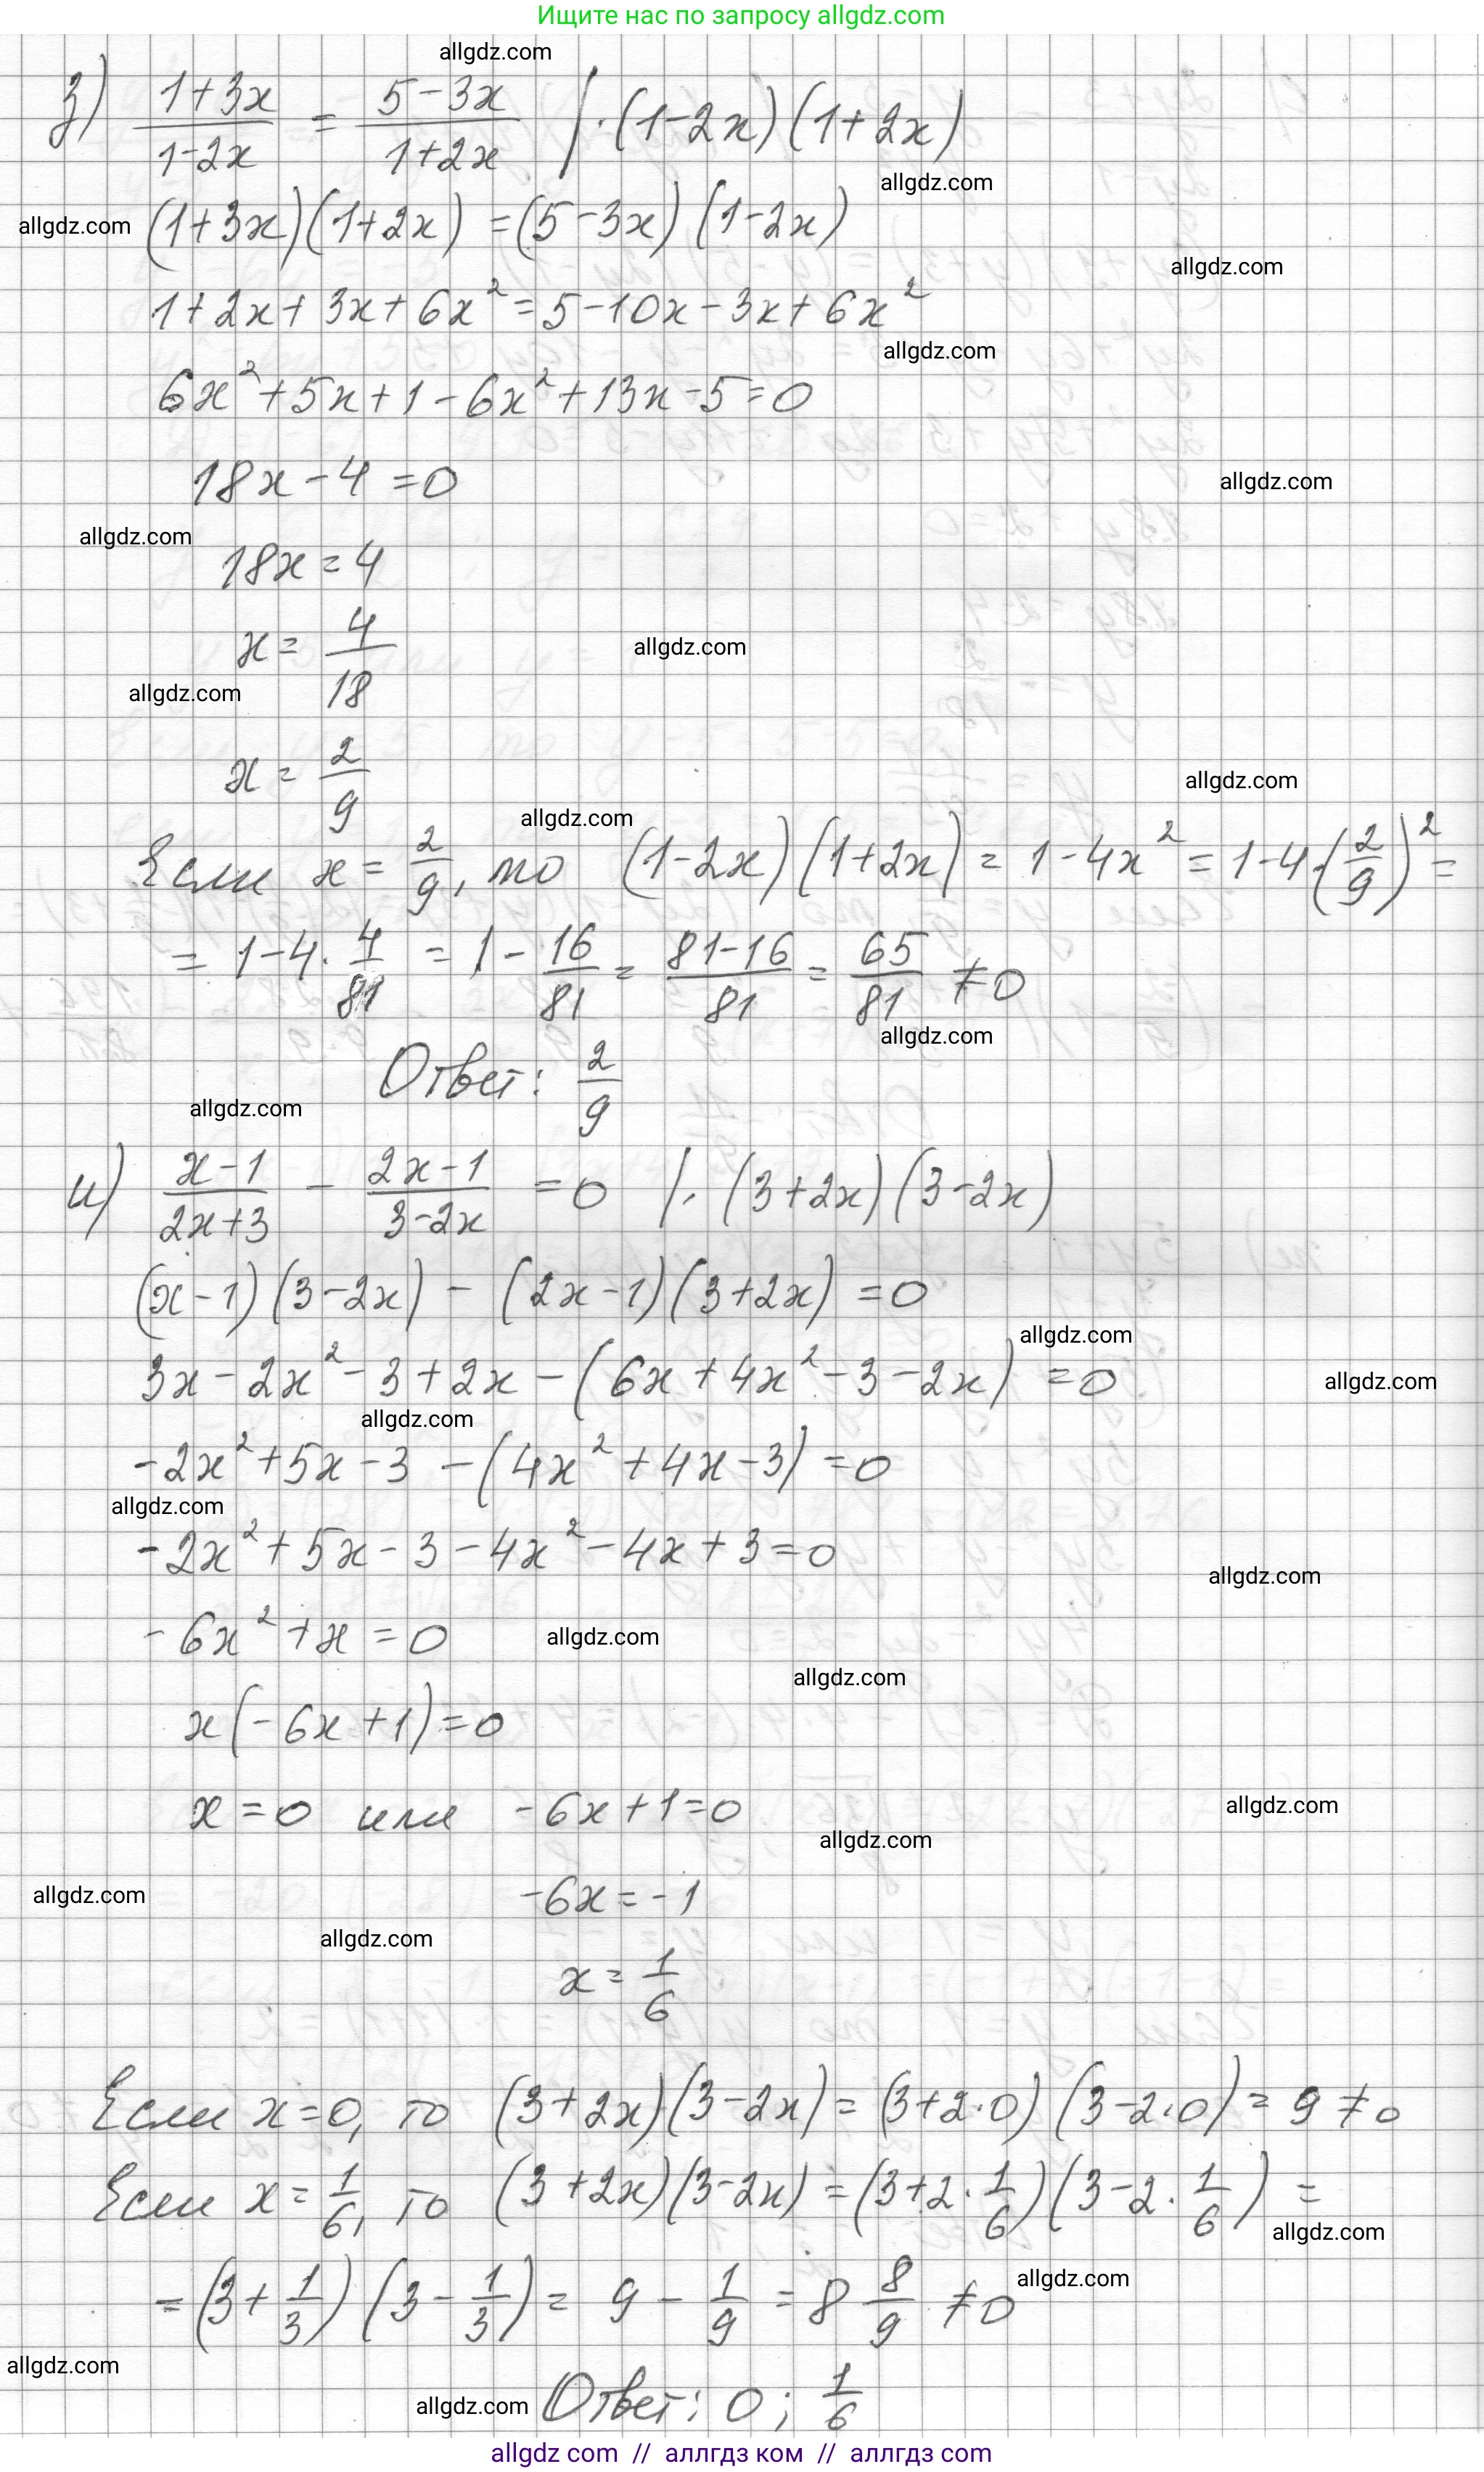 Ищите нас по запросу allgdz.com
allgdz.com
з) (1+3x)/(1-2x) = (5-3x)/(1+2x) | ·(1-2x)(1+2x)
allgdz.com
allgdz.com (1+3x)(1+2x) = (5-3x)(1-2x)
allgdz.com
1+2x+3x+6x² = 5-10x-3x+6x²
allgdz.com
6x²+5x+1-6x²+13x-5=0
18x-4=0
allgdz.com
allgdz.com
18x=4
x = 4/18
allgdz.com
allgdz.com
x = 2/9
allgdz.com
allgdz.com
Если x = 2/9, то (1-2x)(1+2x) = 1-4x² = 1-4·(2/9)² =
= 1-4·4/81 = 1 - 16/81 = (81-16)/81 = 65/81 ≠ 0
allgdz.com
Ответ: 2/9
allgdz.com
и) (x-1)/(2x+3) - (2x-1)/(3-2x) = 0 | ·(3+2x)(3-2x)
(x-1)(3-2x) - (2x-1)(3+2x) = 0
allgdz.com
3x-2x²-3+2x-(6x+4x²-3-2x) = 0
allgdz.com
allgdz.com
-2x²+5x-3-(4x²+4x-3) = 0
allgdz.com
-2x²+5x-3-4x²-4x+3=0
allgdz.com
-6x²+x=0
allgdz.com
allgdz.com
x(-6x+1)=0
x=0 или -6x+1=0
allgdz.com
allgdz.com
-6x=-1
allgdz.com
allgdz.com
x = 1/6
Если x=0, то (3+2x)(3-2x) = (3+2·0)(3-2·0) = 9 ≠ 0
Если x = 1/6, то (3+2x)(3-2x) = (3+2·1/6)(3-2·1/6) =
allgdz.com
= (3+1/3)(3-1/3) = 9 - 1/9 = 8 8/9 ≠ 0
allgdz.com
allgdz.com
allgdz.com Ответ: 0; 1/6
allgdz com // аллгдз ком // аллгдз com